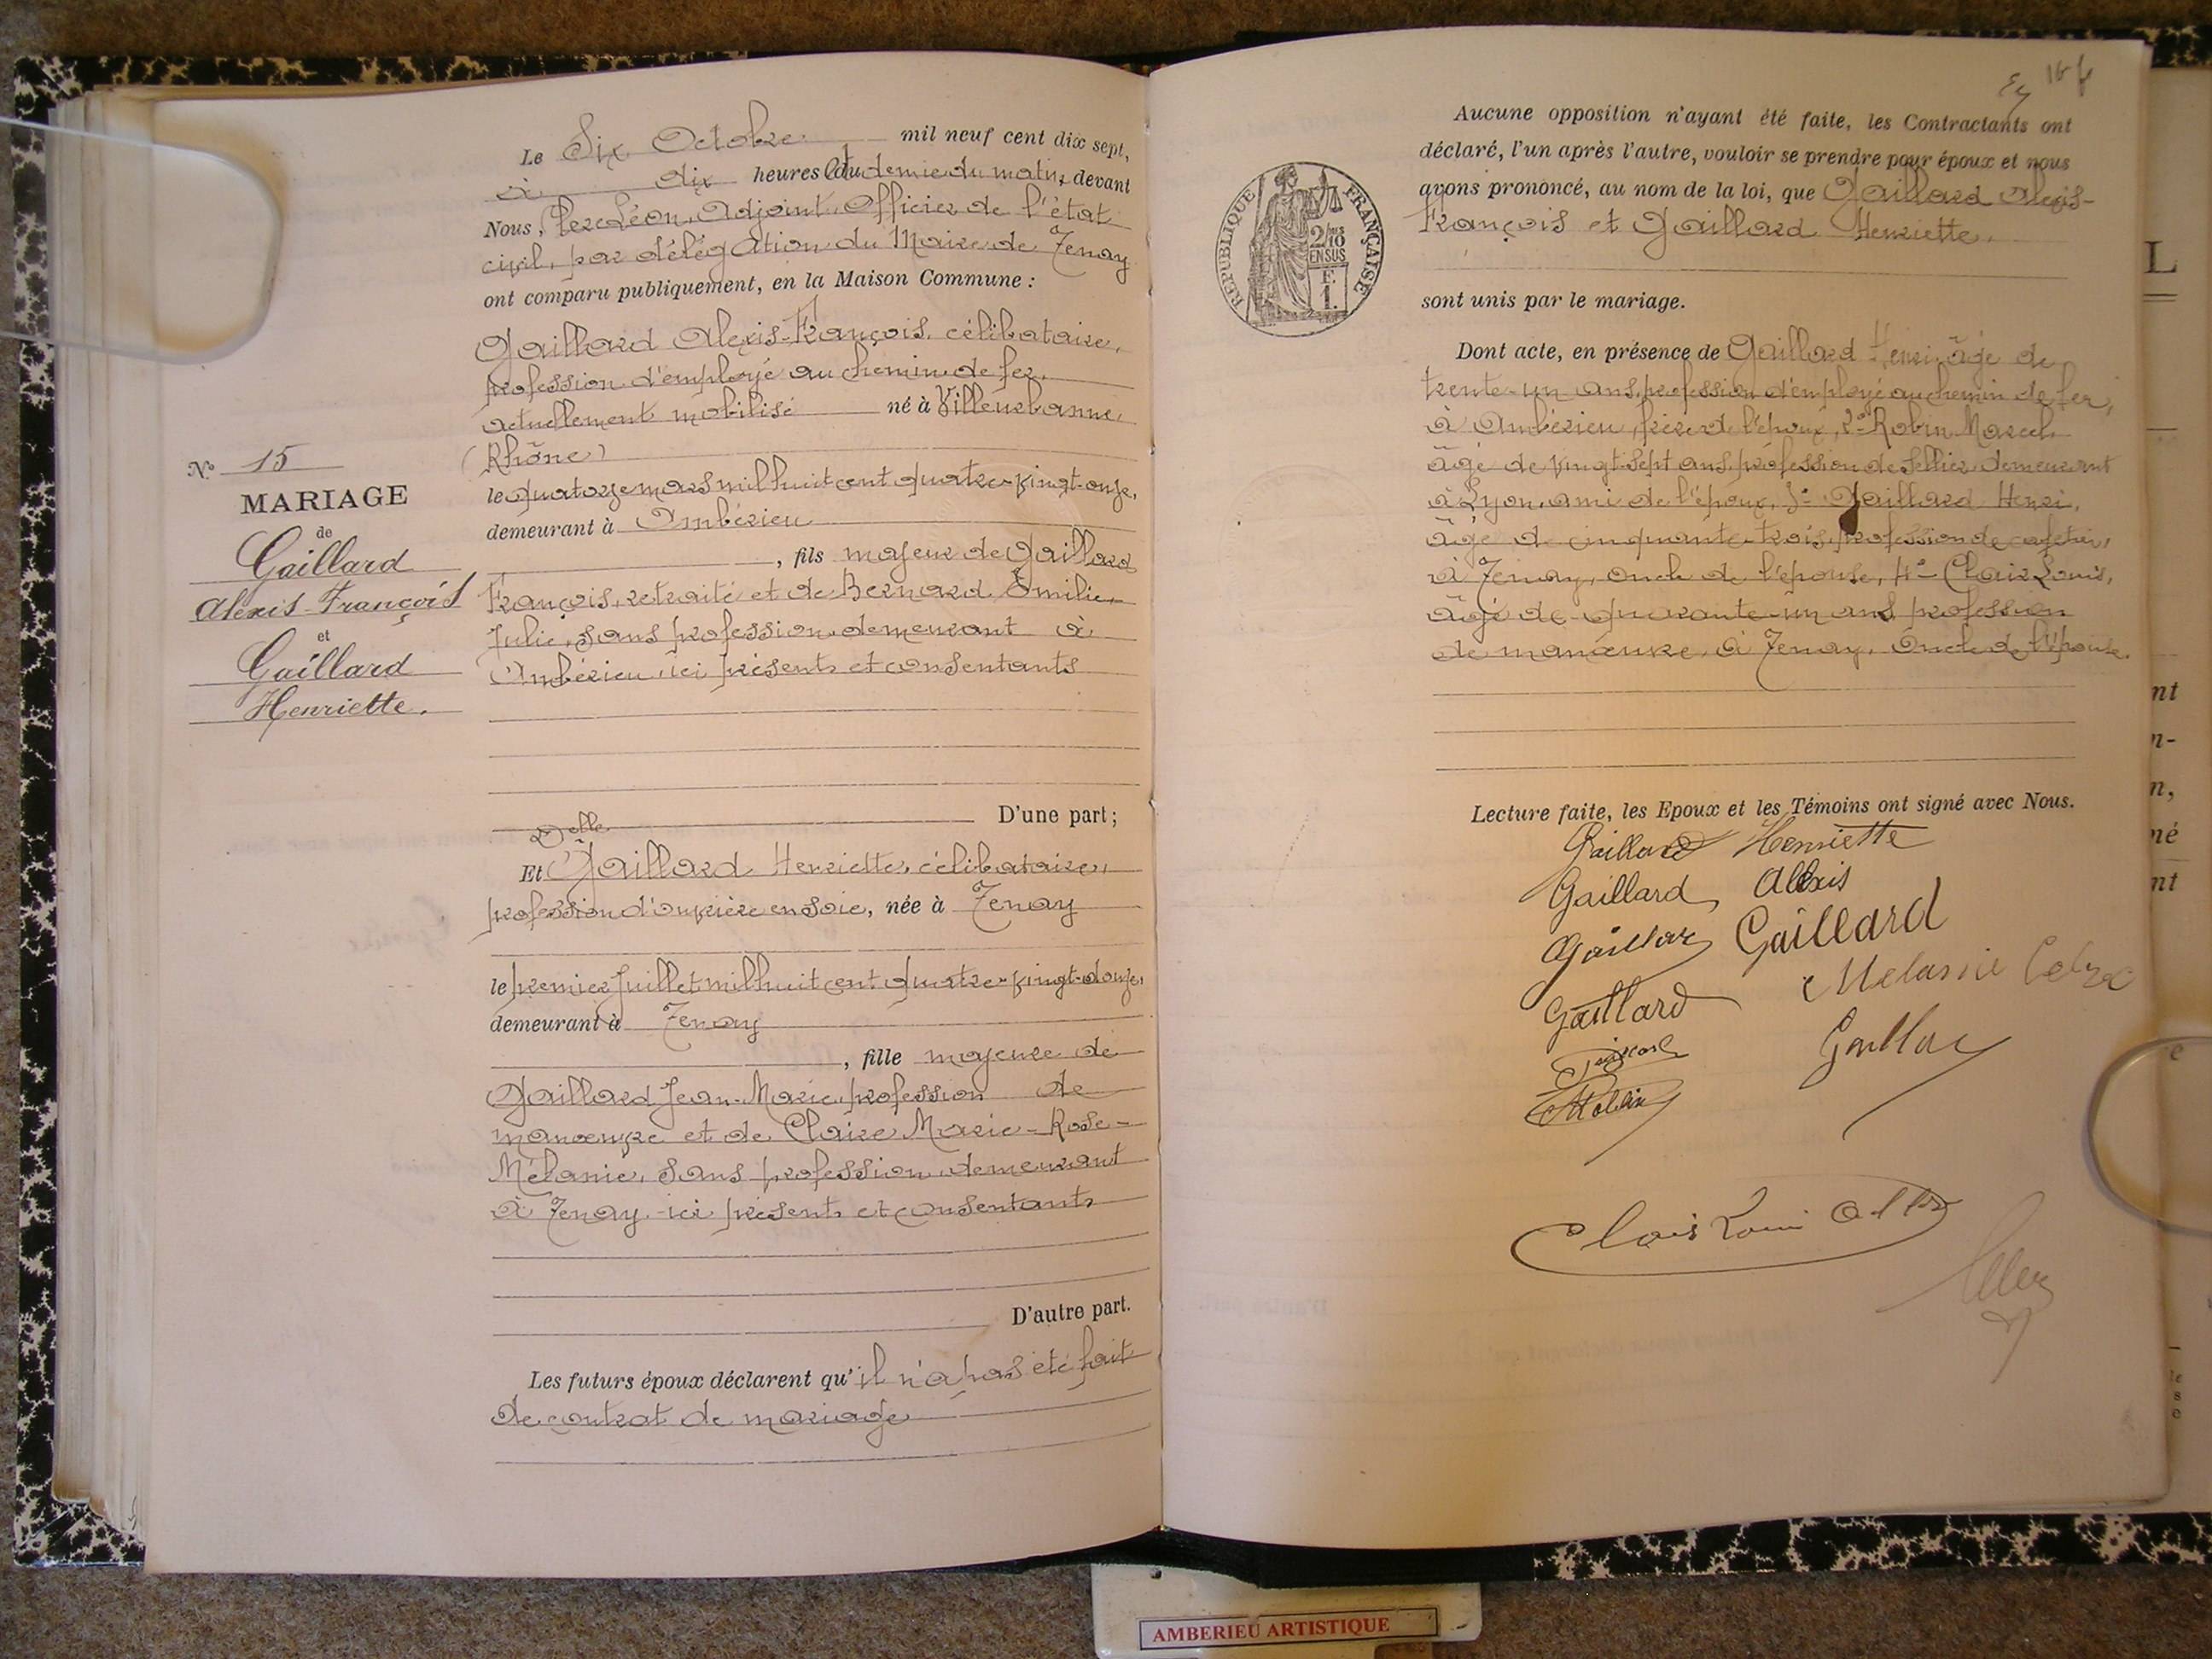 Nº 15
MARIAGE
de
Gaillard
Alexis-François
et
Gaillard
Henriette.
Le Six Octobre mil neuf cent dix sept,
à dix heures et demie du matin, devant
Nous, Léon, Adjoint, Officier de l'état
civil, par délégation du Maire de Tenay
ont comparu publiquement, en la Maison Commune :
Gaillard Alexis-François, célibataire,
profession d'employé au chemin de fer,
actuellement mobilisé né à Villeurbanne,
(Rhône)
le quatorze mars mil huit cent quatre-vingt-onze,
demeurant à Ambérieu
, fils majeur de Gaillard
François, retraité et de Bernard Emilie-
Julie, sans profession demeurant à
Ambérieu, ici présents et consentants
D'une part;
Delle
Et Gaillard Henriette, célibataire,
profession d'ouvrière en soie, née à Tenay
le premier Juillet mil huit cent quatre-vingt-douze,
demeurant à Tenay
, fille majeure de
Gaillard Jean-Marie, profession de
manœuvre et de Claire Marie-Rose-
Mélanie, sans profession, demeurant
à Tenay ici présents et consentants
D'autre part.
Les futurs époux déclarent qu'il n'a pas été fait
de contrat de mariage
Aucune opposition n'ayant été faite, les Contractants ont
déclaré, l'un après l'autre, vouloir se prendre pour époux et nous
avons prononcé, au nom de la loi, que Gaillard Alexis-
François et Gaillard Henriette.
sont unis par le mariage.
RÉPUBLIQUE FRANÇAISE
2/10
EN SUS
E
1.
Dont acte, en présence de Gaillard Henri, âgé de
trente-un ans, profession d'employé au chemin de fer,
à Ambérieu, frère de l'époux, 2º Robin Marcel
âgé de vingt-sept ans, profession de sellier, demeurant
à Lyon, ami de l'époux, 3º Gaillard Henri,
âgé de cinquante-trois, profession de cafetier,
à Tenay, oncle de l'épouse, 4º Clair Louis,
âgé de quarante-un ans profession
de manœuvre, à Tenay, oncle de l'épouse.
Lecture faite, les Epoux et les Témoins ont signé avec Nous.
Gaillard Henriette
Gaillard Alexis
Gaillard
Melanie
Gaillard
Robin
AMBERIEU ARTISTIQUE
L
nt
n-
n,
né
nt